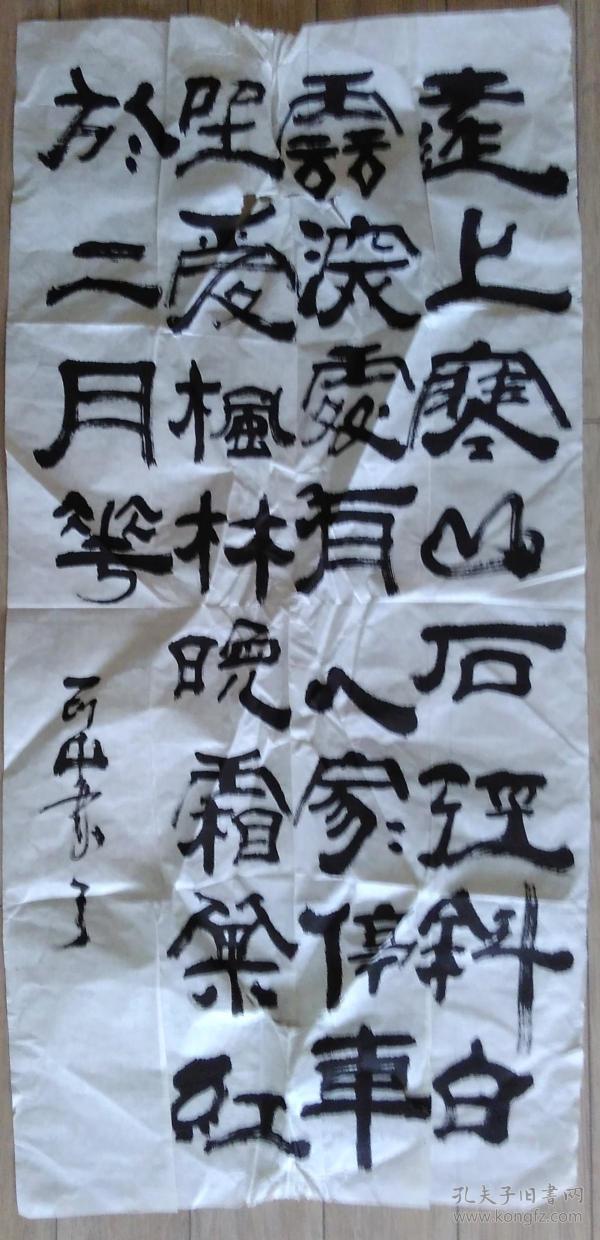 遠上寒山石徑斜白
雲深處有人家停車
坐愛楓林晚霜葉紅
於二月華
孔夫子旧書网
www.kongfz.com